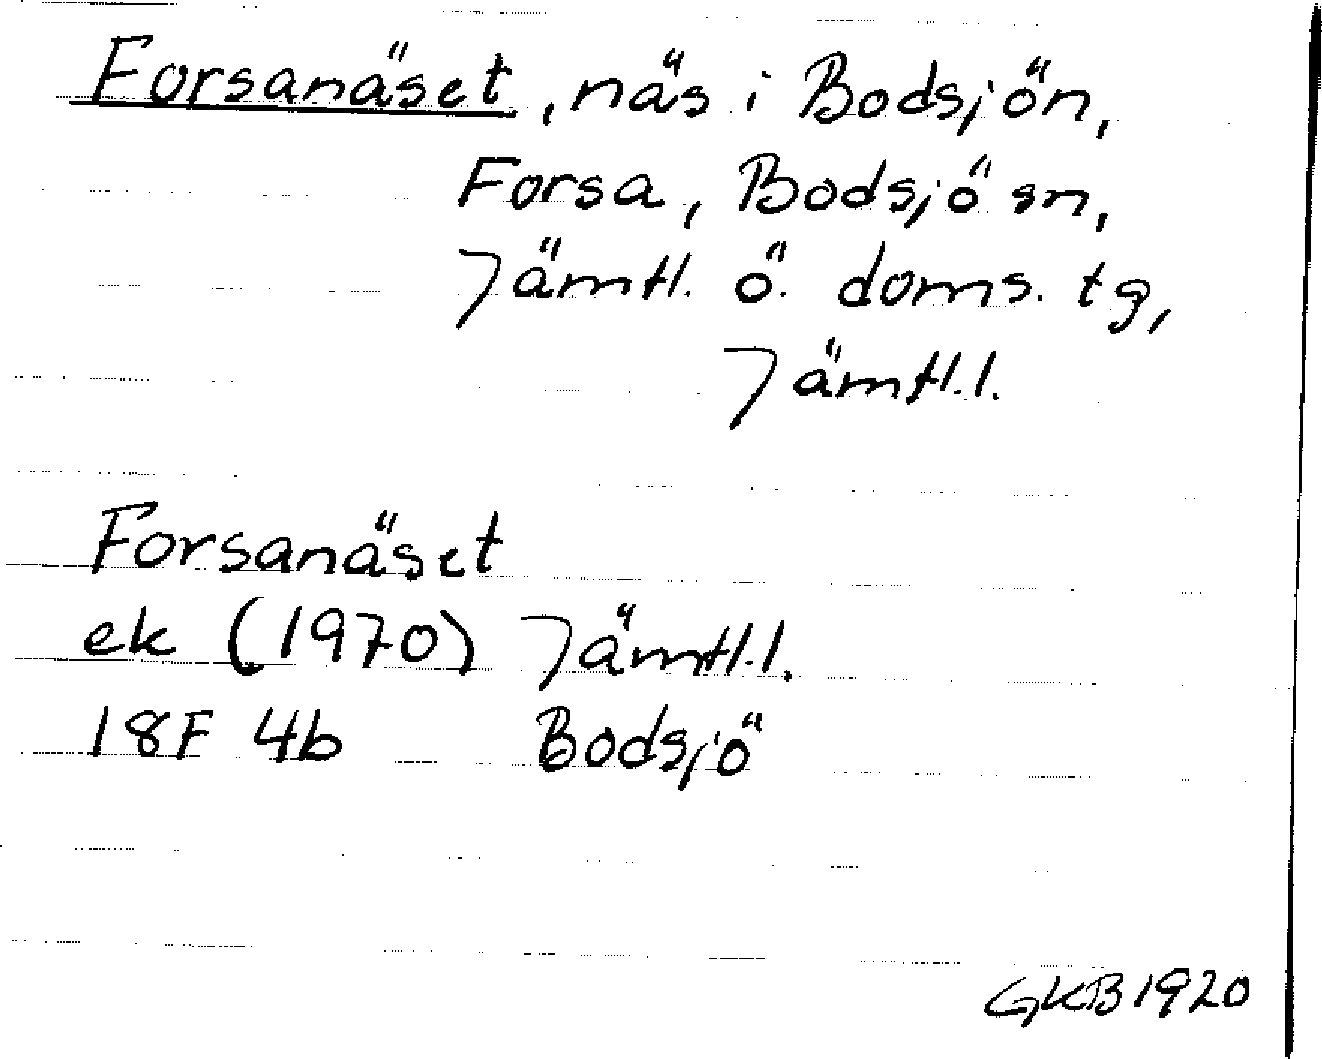 Forsanäset, näs i Bodsjön,
Forsa, Bodsjö sn,
Jämtl. ö. doms. tg,
Jämtl.l.
Forsanäset
ek (1970) Jämtl.l.
18F 4b Bodsjö
GKB1920